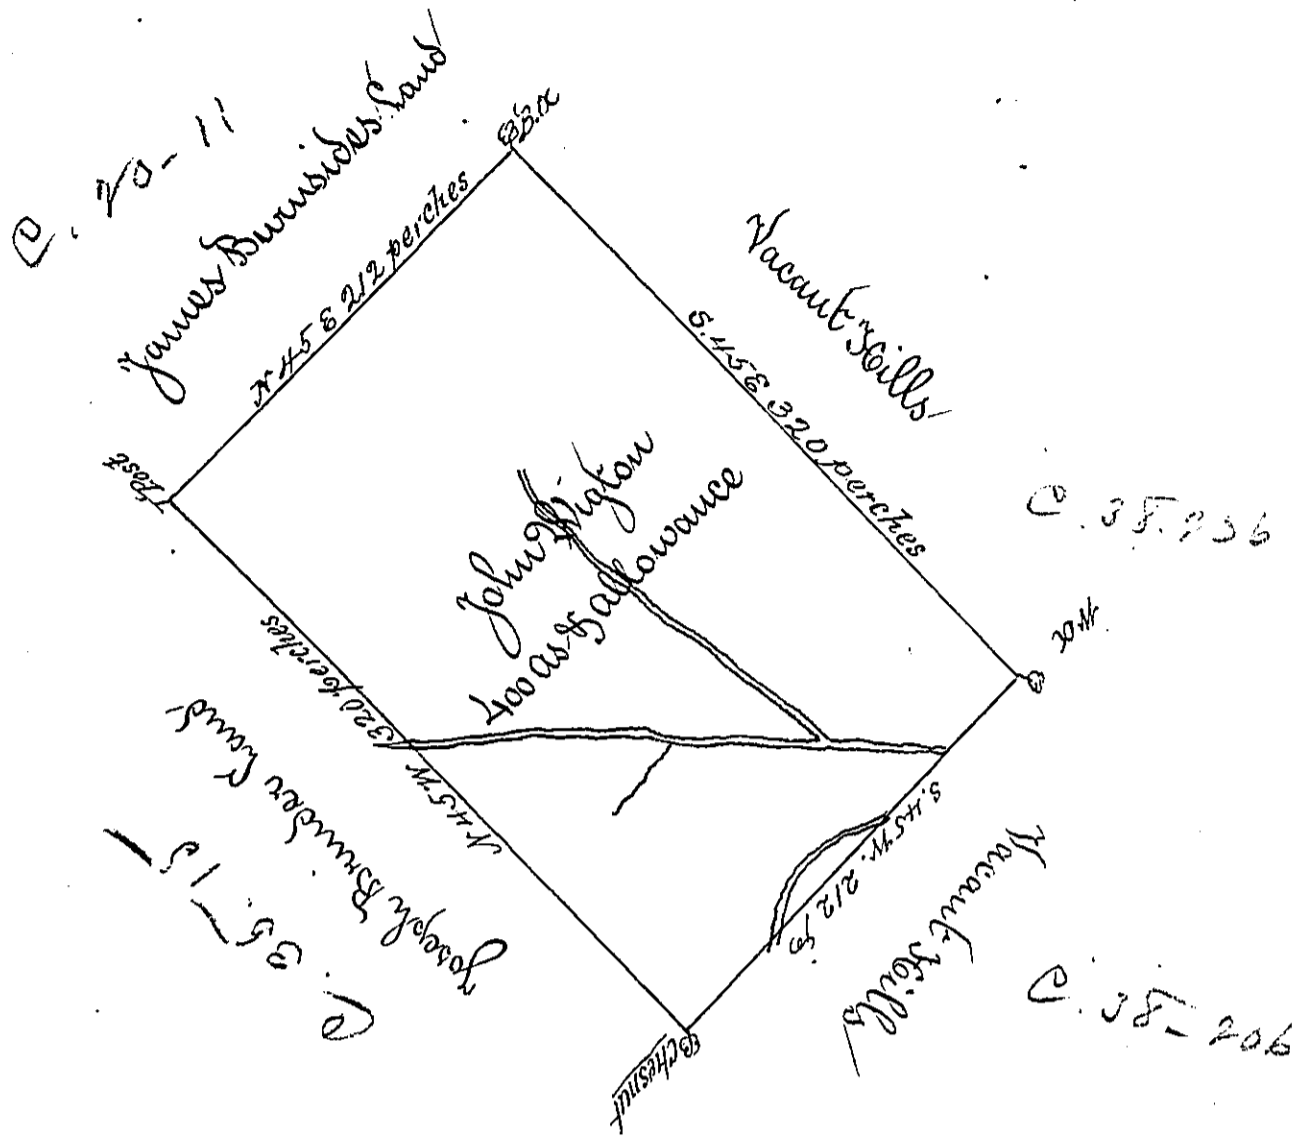 C. 20-11
James Burnsides Land
N 45 E 212 perches
B.O.
Vacant Hills
S. 45 E 320 perches
Post
John Wigton
400 as & allowance
W.O.
N 45 W 320 perches
Joseph Brunder Land
C 35-15
S. 45 W. 212 p.
Vacant Hills
C. 38-206
Chesnut